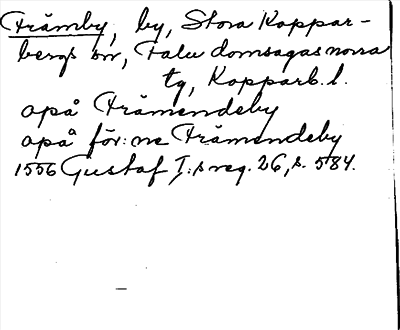 Främby, by, Stora Koppar-
bergs sn, Falu domsagas norra
tg, Kopparb. l.
opå Främendeby
opå för: ne Främendeby
1556 Gustaf I:s reg. 26, s. 584.